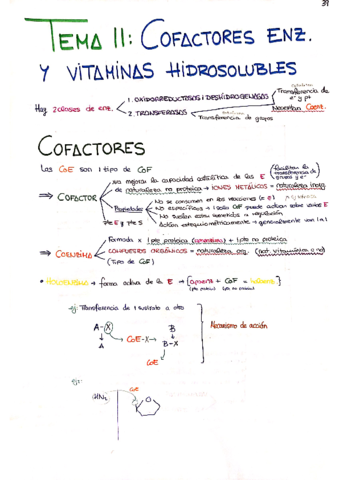 39
TEMA 11: COFACTORES ENZ.
Y VITAMINAS HIDROSOLUBLES
Hay 2 clases de enz.
1. OXIDORREDUCTASAS / DESHIDROGENASAS
Transferencia de
Necesitan CoEnz.
2. TRANSFERASAS
Transferencia de grupos
COFACTORES
Las CoE son 1 tipo de CoF
⇒ COFACTOR
mejorar la capacidad catalítica de las E
de naturaleza no proteica → IONES METÁLICOS = naturaleza inorg.
Propiedades
No se consumen en las reacciones
No específicos → 1 solo CoF puede actuar sobre varias E
No suelen estar sometidos a regulación
Actúan estequiométricamente → generalmente van 1:1
⇒ COENZIMA
Formada x 1 pte proteica (apoenzima) + 1 pte no proteica
COMPUESTOS ORGÁNICOS = naturaleza org. (nat. vitamínica o no)
(Tipo de CoF)
• HOLOENZIMA → forma activa de la E → [apoenz + CoF = holoenz.]
(pte proteica) (pte no proteica)
ej: Transferencia de 1 sustrato a otro
A-X B
A CoE-X B-X
CoE
Mecanismo de acción
ej:
CoE
O